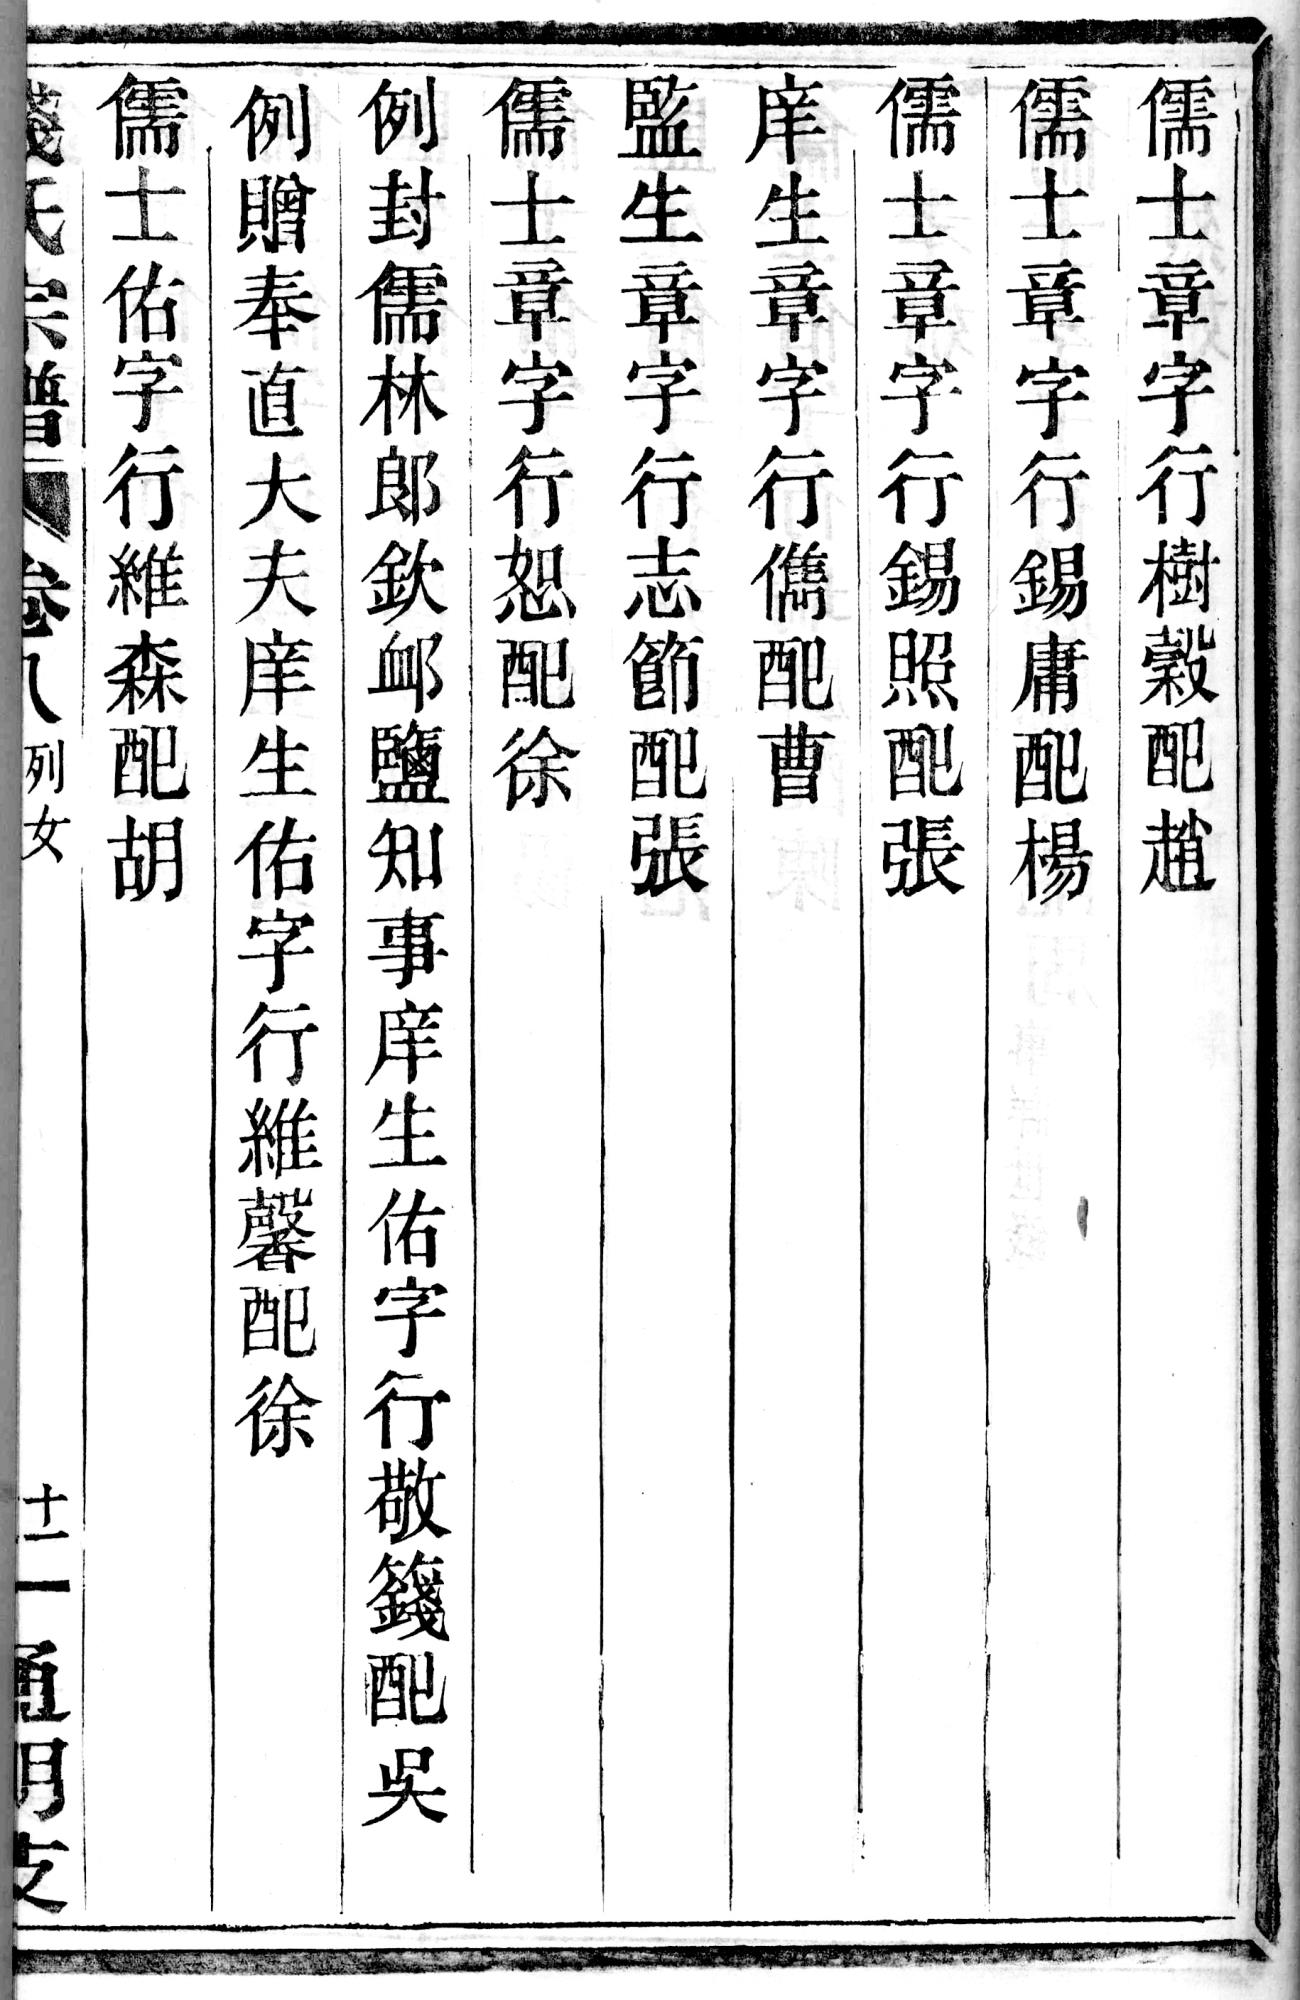 儒士章字行樹穀配趙
儒士章字行錫庸配楊
儒士章字行錫照配張
庠生章字行儁配曹
監生章字行志節配張
儒士章字行恕配徐
例封儒林郎欽卹鹽知事庠生佑字行敬籛配吳
例贈奉直大夫庠生佑字行維馨配徐
儒士佑字行維森配胡
氏宗譜 卷八 列女 十一 通明支